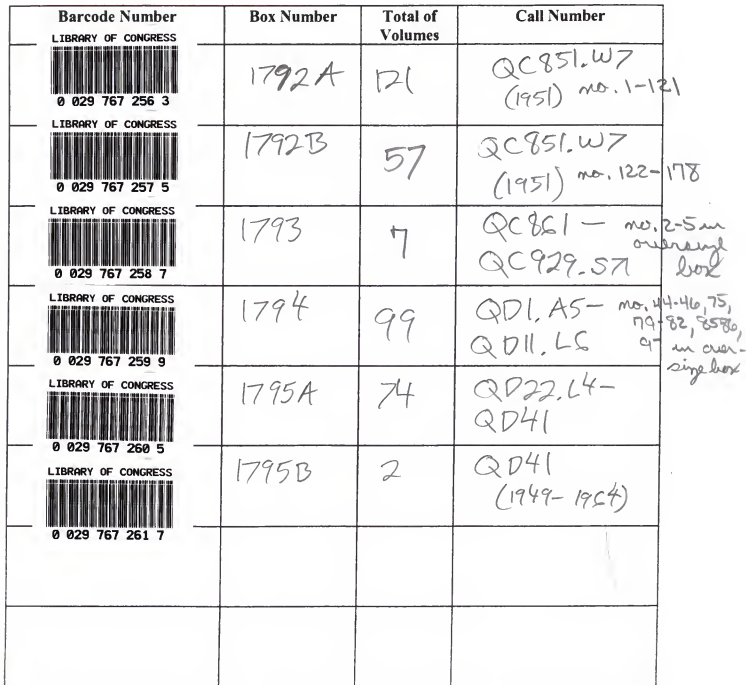 Barcode Number Box Number Total of Volumes Call Number
LIBRARY OF CONGRESS
0 029 767 256 3
1792A 121 QC851.W7
(1951) no. 1-121
LIBRARY OF CONGRESS
0 029 767 257 5
1792B 57 QC851.W7
(1951) no. 122-178
LIBRARY OF CONGRESS
0 029 767 258 7
1793 7 QC861 — no. 2-5 in
oversize
QC929.S71 box
LIBRARY OF CONGRESS
0 029 767 259 9
1794 99 QD1.A5- no. 44-46, 75,
79-82, 8586,
QD11.L6 97 in over-
size box
LIBRARY OF CONGRESS
0 029 767 260 5
1795A 74 QD22.L4-
QD41
LIBRARY OF CONGRESS
0 029 767 261 7
1795B 2 QD41
(1949-1964)